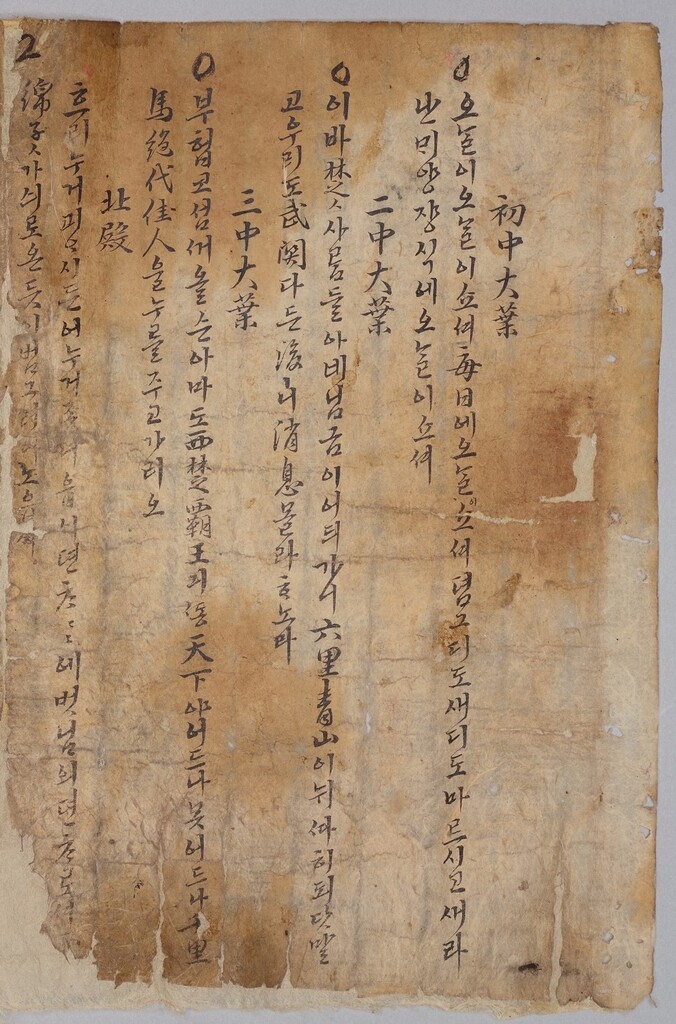 初中大葉
오ᄂᆞᆯ이 오ᄂᆞᆯ이쇼셔 每日에 오ᄂᆞᆯ이쇼셔 뎜그디도 새디도 마르시고 새라
난 ᄆᆡ양쟝식에 오ᄂᆞᆯ이쇼셔
二中大葉
이바 楚ㅅ사ᄅᆞᆷ들아 네 님금이 어듸 가니 六里靑山이 뉘 ᄯᅡ히 되닷 말
고 우리도 武關 다든 後ㅣ니 消息 몰라 ᄒᆞ노라
三中大葉
부헙코 섬ᄭᅥ올슨 아마도 西楚覇王 긔ᄯᅩᆼ 天下야 어드나 못어드나 千里
馬 絶代佳人을 누를 주고 가리오
北殿
흐리누거 괴오시든 어누거 좃니읍시 뎐ᄎᆞ〻에 벗님의 뎐ᄎᆞ로셔
綿子ㅅ가싀로온 듯시 범그려 노읍셔
2